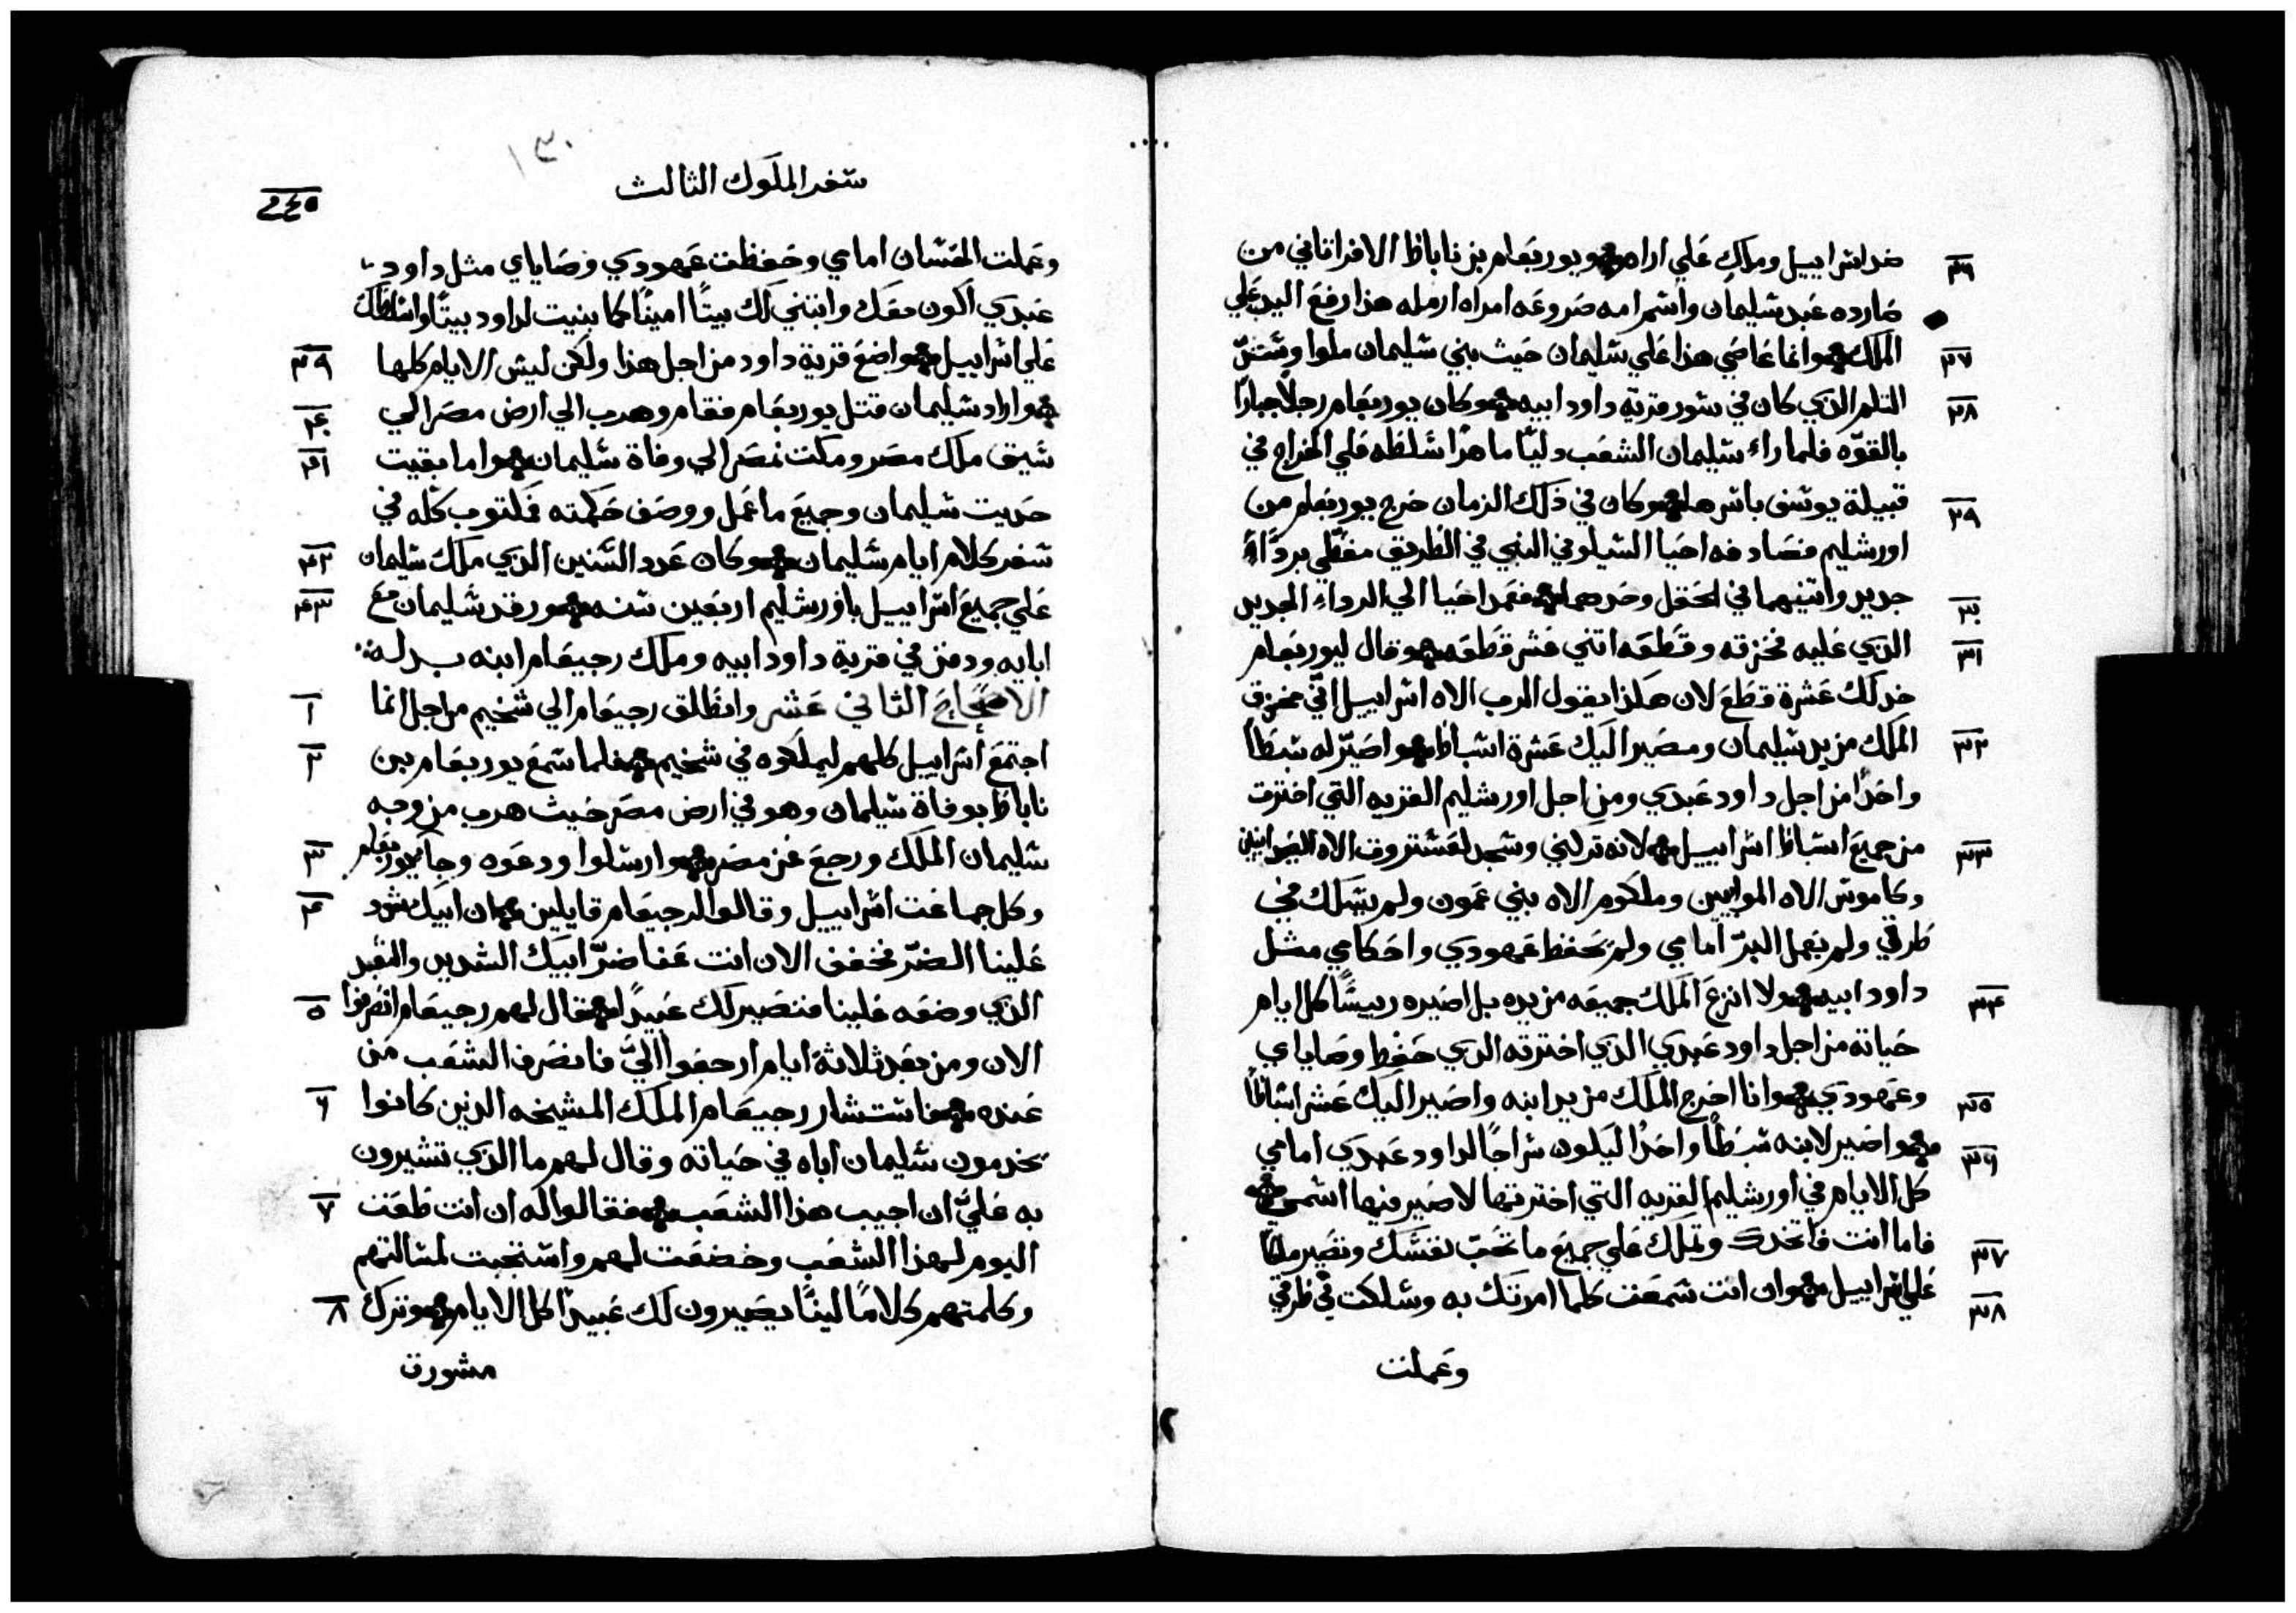 ٢٦ ضد اسراييل وملك علي ارام ويوربعام بن ناباط الافراتاني من
صارده عبد سليمان واسم امه صروعه امراه ارمله هذا رفع اليد علي
٢٧ الملك وانما عاصي هذا علي سليمان حيث بني سليمان ملوا وسد
٢٨ الثلم الذي كان في سور قرية داود ابيه وكان يوربعام رجلًا جبارًا
بالقوّه فلما راء سليمان الشعب وليًّا ماهرًا سلطه علي الخراج في
٢٩ قبيلة يوسف باسرها وكان في ذلك الزمان خرج يوربعام من
اورشليم فصادفه احيا السيلوني النبي في الطريق مغطي برداءً
٣٠ جديد واثنيهما في الحقل وحدهما فعمد احيا الي الرداء الجديد
٣١ الذي عليه فخزقه وقطعه اتني عشر قطعه وقال ليوربعام
خد لك عشرة قطع لان هكذا يقول الرب الاه اسراييل اني مخزق
٣٢ الملك من يد سليمان ومصير اليك عشرة اسباط واصيّر له سبطًا
واحدًا من اجل داود عبدي ومن اجل اورشليم القريه التي اخترت
٣٣ من جميع اسباط اسراييل لانه تركني وسجد لعشتروت الاه الصيدانيين
وكاموش الاه الموابيين وملكوم الاه بني عمون ولم يسلك في
طرقي ولم يعمل البرّ امامي ولم يحفظ عهودي واحكامي مثل
٣٤ داود ابيه ولا انزع الملك جميعه من يده بل اصيره رييسًا كل ايام
حياته من اجل داود عبدي الذي اخترته الذي حفظ وصاياي
٣٥ وعهودي وانا اخرج الملك من يد ابنه واصير اليك عشر اسباطًا
٣٦ واصير لابنه سبطًا واحدًا ليكون سراجًا لداود عبدي امامي
كل الايام في اورشليم القريه التي اخترتها لاصير فيها اسمي
٣٧ فاما انت فاتخدك وتملك علي جميع ما تحبّ نفسك وتصير ملكًا
٣٨ علي اسراييل وان انت سمعت كلما امرتك به وسلكت في طرقي
وعملت
١٣٠
سفر الملوك الثالث
٢٤٥
وعملت الحسنات امامي وحفظت عهودي وصاياي مثل داود
عبدي اكون معك وابتني لك بيتًا امينًا كما بنيت لداود بيتًا واسلطك
٣٩ علي اسراييل واضع قرية داود من اجل هذا ولكن ليس الايام كلها
٤٠ واراد سليمان قتل يوربعام فقام وهرب الي ارض مصر الي
٤١ شيق ملك مصر ومكث بمصر الي وفاة سليمان واما بقيت
حديت سليمان وجميع ما عمل ووصف حكمته مكتوب كله في
٤٢ سفر كلام ايام سليمان وكان عدد السنين الذي ملك سليمان
٤٣ علي جميع اسراييل باورشليم اربعين سنه ورقد سليمان مع
ابايه ودفن في قرية داود ابيه وملك رجيعام ابنه بدله
١ الاصحاح الثاني عشر وانطلق رجيعام الي شخيم من اجل انما
٢ اجتمع اسراييل كلهم ليملكوه في شخيم فلما سمع يوربعام بن
ناباط بوفاة سليمان وهو في ارض مصر حيث هرب من وجه
٣ سليمان الملك ورجع من مصر وارسلوا ودعوه وجا يوربعام
٤ وكل جماعت اسراييل وقالوا لرجيعام قايلين ان ابيك شدد
علينا الضرّ فخفف الان انت عنا ضرّ ابيك الشديد والتقيل
٥ الذي وضعه علينا فنصير لك عبيدًا فقال لهم رجيعام انصرفوا
الان ومن بعد ثلاثة ايام ارجعوا اليّ فانصرف الشعب من
٦ عنده فاستشار رجيعام الملك المشيخه الذين كانوا
يخدمون سليمان اباه في حياته وقال لهم ما الذي تشيرون
٧ به عليّ ان اجيب هذا الشعب فقالوا له ان انت طعت
اليوم لهذا الشعب وخضعت لهم واستجبت لمسالتهم
٨ وكلمتهم كلامًا لينًا يصيرون لك عبيدًا كل الايام وترك
مشورة